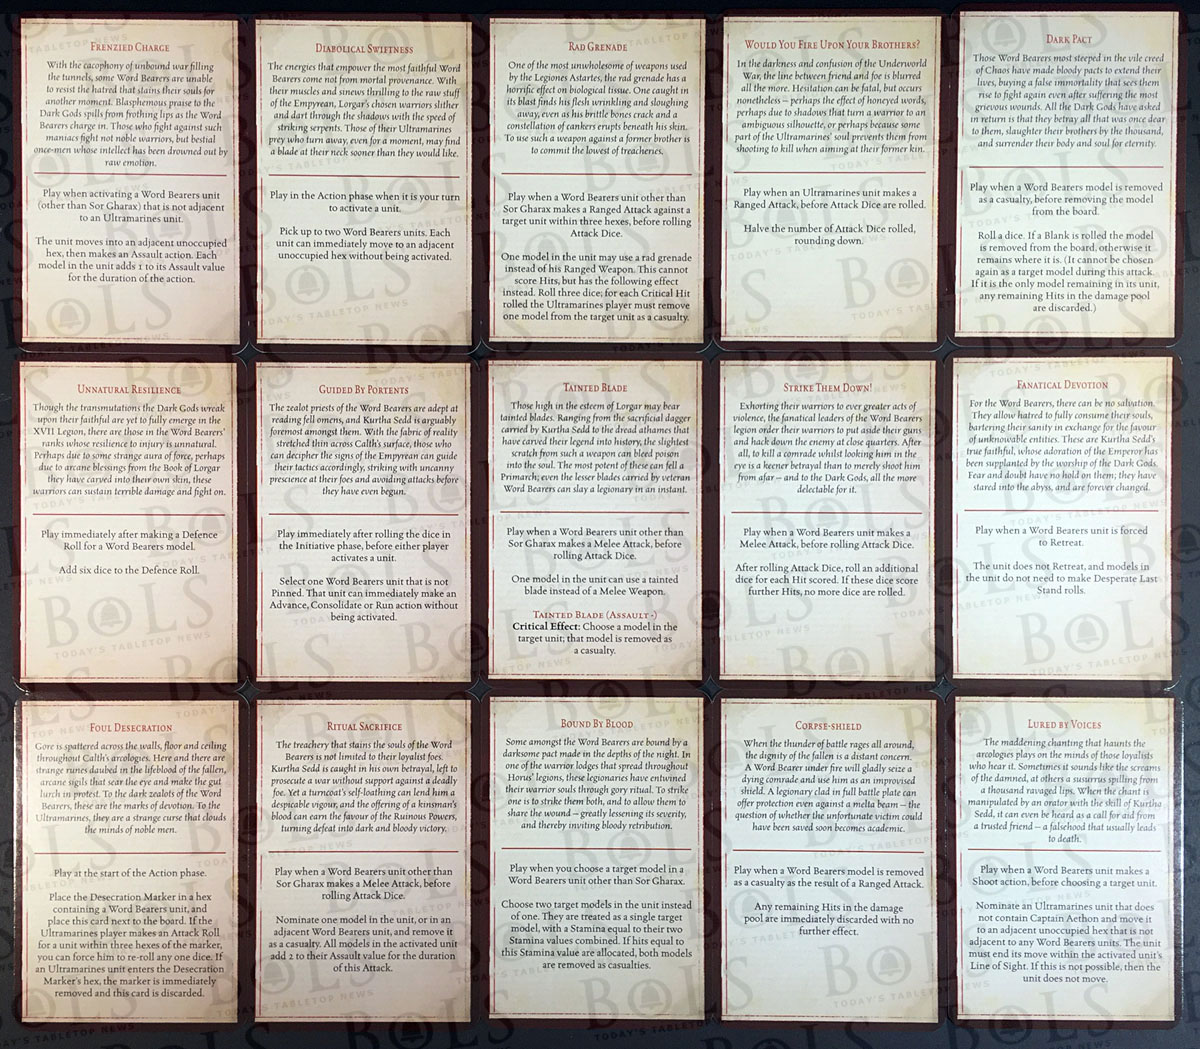 FRENZIED CHARGE
With the cacophony of unbound war filling
the tunnels, some Word Bearers are unable
to resist the hatred that stains their souls for
another moment. Blasphemous praise to the
Dark Gods spills from frothing lips as the Word
Bearers charge in. Those who fight against such
maniacs fight not noble warriors, but bestial
once-men whose intellect has been drowned out by
raw emotion.
Play when activating a Word Bearers unit
(other than Sor Gharax) that is not adjacent
to an Ultramarines unit.
The unit moves into an adjacent unoccupied
hex, then makes an Assault action. Each
model in the unit adds 1 to its Assault value
for the duration of the action.
DIABOLICAL SWIFTNESS
The energies that empower the most faithful Word
Bearers come not from mortal provenance. With
their muscles and sinews thrilling to the raw stuff
of the Empyrean, Lorgar's chosen warriors slither
and dart through the shadows with the speed of
striking serpents. Those of their Ultramarines
prey who turn away, even for a moment, may find
a blade at their neck sooner than they would like.
Play in the Action phase when it is your turn
to activate a unit.
Pick up to two Word Bearers units. Each
unit can immediately move to an adjacent
unoccupied hex without being activated.
RAD GRENADE
One of the most unwholesome of weapons used
by the Legiones Astartes, the rad grenade has a
horrific effect on biological tissue. One caught in
its blast finds his flesh wrinkling and sloughing
away, even as his brittle bones crack and a
constellation of cankers erupts beneath his skin.
To use such a weapon against a former brother is
to commit the lowest of treacheries.
Play when a Word Bearers unit other than
Sor Gharax makes a Ranged Attack against a
target unit within three hexes, before rolling
Attack Dice.
One model in the unit may use a rad grenade
instead of his Ranged Weapon. This cannot
score Hits, but has the following effect
instead. Roll three dice; for each Critical Hit
rolled the Ultramarines player must remove
one model from the target unit as a casualty.
WOULD YOU FIRE UPON YOUR BROTHERS?
In the darkness and confusion of the Underworld
War, the line between friend and foe is blurred
all the more. Hesitation can be fatal, but occurs
nonetheless – perhaps the effect of honeyed words,
perhaps due to shadows that turn a warrior to an
ambiguous silhouette, or perhaps because some
part of the Ultramarines' soul prevents them from
shooting to kill when aiming at their former kin.
Play when an Ultramarines unit makes a
Ranged Attack, before Attack Dice are rolled.
Halve the number of Attack Dice rolled,
rounding down.
DARK PACT
Those Word Bearers most steeped in the vile creed
of Chaos have made bloody pacts to extend their
lives, buying a false immortality that sees them
rise to fight again even after suffering the most
grievous wounds. All the Dark Gods have asked
in return is that they betray all that was once dear
to them, slaughter their brothers by the thousand,
and surrender their body and soul for eternity.
Play when a Word Bearers model is removed
as a casualty, before removing the model
from the board.
Roll a dice. If a Blank is rolled the model
is removed from the board, otherwise it
remains where it is. (It cannot be chosen
again as a target model during this attack.
If it is the only model remaining in its unit,
any remaining Hits in the damage pool
are discarded.)
UNNATURAL RESILIENCE
Though the transmutations the Dark Gods wreak
upon their faithful are yet to fully emerge in the
XVII Legion, there are those in the Word Bearers'
ranks whose resilience to injury is unnatural.
Perhaps due to some strange aura of force, perhaps
due to arcane blessings from the Book of Lorgar
they have carved into their own skin, these
warriors can sustain terrible damage and fight on.
Play immediately after making a Defence
Roll for a Word Bearers model.
Add six dice to the Defence Roll.
GUIDED BY PORTENTS
The zealot priests of the Word Bearers are adept at
reading fell omens, and Kurtha Sedd is arguably
foremost amongst them. With the fabric of reality
stretched thin across Calth's surface, those who
can decipher the signs of the Empyrean can guide
their tactics accordingly, striking with uncanny
prescience at their foes and avoiding attacks before
they have even begun.
Play immediately after rolling the dice in
the Initiative phase, before either player
activates a unit.
Select one Word Bearers unit that is not
Pinned. That unit can immediately make an
Advance, Consolidate or Run action without
being activated.
TAINTED BLADE
Those high in the esteem of Lorgar may bear
tainted blades. Ranging from the sacrificial dagger
carried by Kurtha Sedd to the dread athames that
have carved their legend into history, the slightest
scratch from such a weapon can bleed poison
into the soul. The most potent of these can fell a
Primarch; even the lesser blades carried by veteran
Word Bearers can slay a legionary in an instant.
Play when a Word Bearers unit other than
Sor Gharax makes a Melee Attack, before
rolling Attack Dice.
One model in the unit can use a tainted
blade instead of a Melee Weapon.
TAINTED BLADE (ASSAULT -)
Critical Effect: Choose a model in the
target unit; that model is removed as
a casualty.
STRIKE THEM DOWN!
Exhorting their warriors to ever greater acts of
violence, the fanatical leaders of the Word Bearers
legion order their warriors to put aside their guns
and hack down the enemy at close quarters. After
all, to kill a comrade whilst looking him in the
eye is a keener betrayal than to merely shoot him
from afar – and to the Dark Gods, all the more
delectable for it.
Play when a Word Bearers unit makes a
Melee Attack, before rolling Attack Dice.
After rolling Attack Dice, roll an additional
dice for each Hit scored. If these dice score
further Hits, no more dice are rolled.
FANATICAL DEVOTION
For the Word Bearers, there can be no salvation.
They allow hatred to fully consume their souls,
bartering their sanity in exchange for the favour
of unknowable entities. These are Kurtha Sedd's
true faithful, whose adoration of the Emperor has
been supplanted by the worship of the Dark Gods.
Fear and doubt have no hold on them; they have
stared into the abyss, and are forever changed.
Play when a Word Bearers unit is forced
to Retreat.
The unit does not Retreat, and models in
the unit do not need to make Desperate Last
Stand rolls.
FOUL DESECRATION
Gore is spattered across the walls, floor and ceiling
throughout Calth's arcologies. Here and there are
strange runes daubed in the lifeblood of the fallen,
arcane sigils that sear the eye and make the gut
lurch in protest. To the dark zealots of the Word
Bearers, these are the marks of devotion. To the
Ultramarines, they are a strange curse that clouds
the minds of noble men.
Play at the start of the Action phase.
Place the Desecration Marker in a hex
containing a Word Bearers unit, and
place this card next to the board. If the
Ultramarines player makes an Attack Roll
for a unit within three hexes of the marker,
you can force him to re-roll any one dice. If
an Ultramarines unit enters the Desecration
Marker's hex, the marker is immediately
removed and this card is discarded.
RITUAL SACRIFICE
The treachery that stains the souls of the Word
Bearers is not limited to their loyalist foes.
Kurtha Sedd is caught in his own betrayal, left to
prosecute a war without support against a deadly
foe. Yet a turncoat's self-loathing can lend him a
despicable vigour, and the offering of a kinsman's
blood can earn the favour of the Ruinous Powers,
turning defeat into dark and bloody victory.
Play when a Word Bearers unit other than
Sor Gharax makes a Melee Attack, before
rolling Attack Dice.
Nominate one model in the unit, or in an
adjacent Word Bearers unit, and remove it
as a casualty. All models in the activated unit
add 2 to their Assault value for the duration
of this Attack.
BOUND BY BLOOD
Some amongst the Word Bearers are bound by a
darksome pact made in the depths of the night. In
one of the warrior lodges that spread throughout
Horus' legions, these legionaries have entwined
their warrior souls through gory ritual. To strike
one is to strike them both, and to allow them to
share the wound – greatly lessening its severity,
and thereby inviting bloody retribution.
Play when you choose a target model in a
Word Bearers unit other than Sor Gharax.
Choose two target models in the unit instead
of one. They are treated as a single target
model, with a Stamina equal to their two
Stamina values combined. If hits equal to
this Stamina value are allocated, both models
are removed as casualties.
CORPSE-SHIELD
When the thunder of battle rages all around,
the dignity of the fallen is a distant concern.
A Word Bearer under fire will gladly seize a
dying comrade and use him as an improvised
shield. A legionary clad in full battle plate can
offer protection even against a melta beam – the
question of whether the unfortunate victim could
have been saved soon becomes academic.
Play when a Word Bearers model is removed
as a casualty as the result of a Ranged Attack.
Any remaining Hits in the damage
pool are immediately discarded with no
further effect.
LURED BY VOICES
The maddening chanting that haunts the
arcologies plays on the minds of those loyalists
who hear it. Sometimes it sounds like the screams
of the damned, at others a susurrus spilling from
a thousand ravaged lips. When the chant is
manipulated by an orator with the skill of Kurtha
Sedd, it can even be heard as a call for aid from
a trusted friend – a falsehood that usually leads
to death.
Play when a Word Bearers unit makes a
Shoot action, before choosing a target unit.
Nominate an Ultramarines unit that does
not contain Captain Aethon and move it
to an adjacent unoccupied hex that is not
adjacent to any Word Bearers units. The unit
must end its move within the activated unit's
Line of Sight. If this is not possible, then the
unit does not move.
BOLS
TODAY'S TABLETOP NEWS